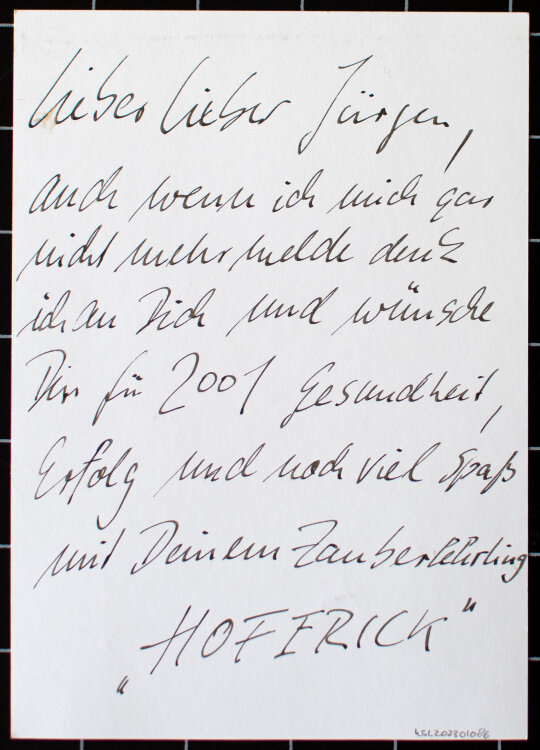 Lieber lieber Jürgen,
auch wenn ich mich gar
nicht mehr melde denk
ich an Dich und wünsche
Dir für 2001 Gesundheit,
Erfolg und noch viel Spaß
mit Deinem Zauberlehrling
„HOFERICK"